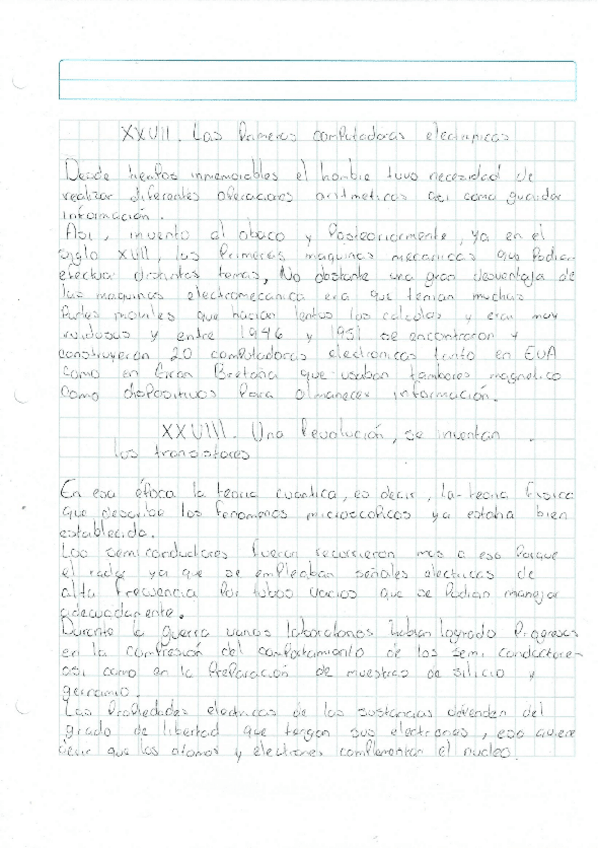 XXVII. Las Primeras computadoras electronicas
Desde tiempos inmemoriables el hombre tuvo necesidad de
realizar diferentes operaciones aritmeticas asi como guardar
información.
Asi, invento al abaco y Posteoriormente, ya en el
siglo XVII, las Primeras maquinas mecanicas que Podian
efectuar distintas tareas, No obstante una gran desventaja de
las maquinas electromecánica era que tenian muchas
Partes moviles que hacian lentos los calculos y eran muy
ruidosas y entre 1946 y 1951 se encontraron y
construyeron 20 computadoras electronicas tanto en EUA
como en Gran Bretaña que usaban tambores magnetico
como dispositivos Para almanecer información.
XXVIII. Una Revolución, se inventan
los transistores
En esa época la teoria cuantica, es decir, la teoria Fisica
que describe los fenomenos microscoPicos ya estaba bien
establecida.
Los semiconductores fueron recurrieron mas a eso Porque
el radar ya que se empleaban señales electricas de
alta Frecuencia Por tubos varios que se Podian manejar
adecuadamente.
Durante la guerra varios laboratorios habian logrado Progresos
en la comPresion del comPortamiento de los semi conductores
asi como en la PreParación de muestras de silicio y
germanio.
Las ProPiedades electricas de las sustancias dependen del
grado de libertad que tengan sus electrones, eso quiere
decir que los atomos y electrones complementan el nucleo.